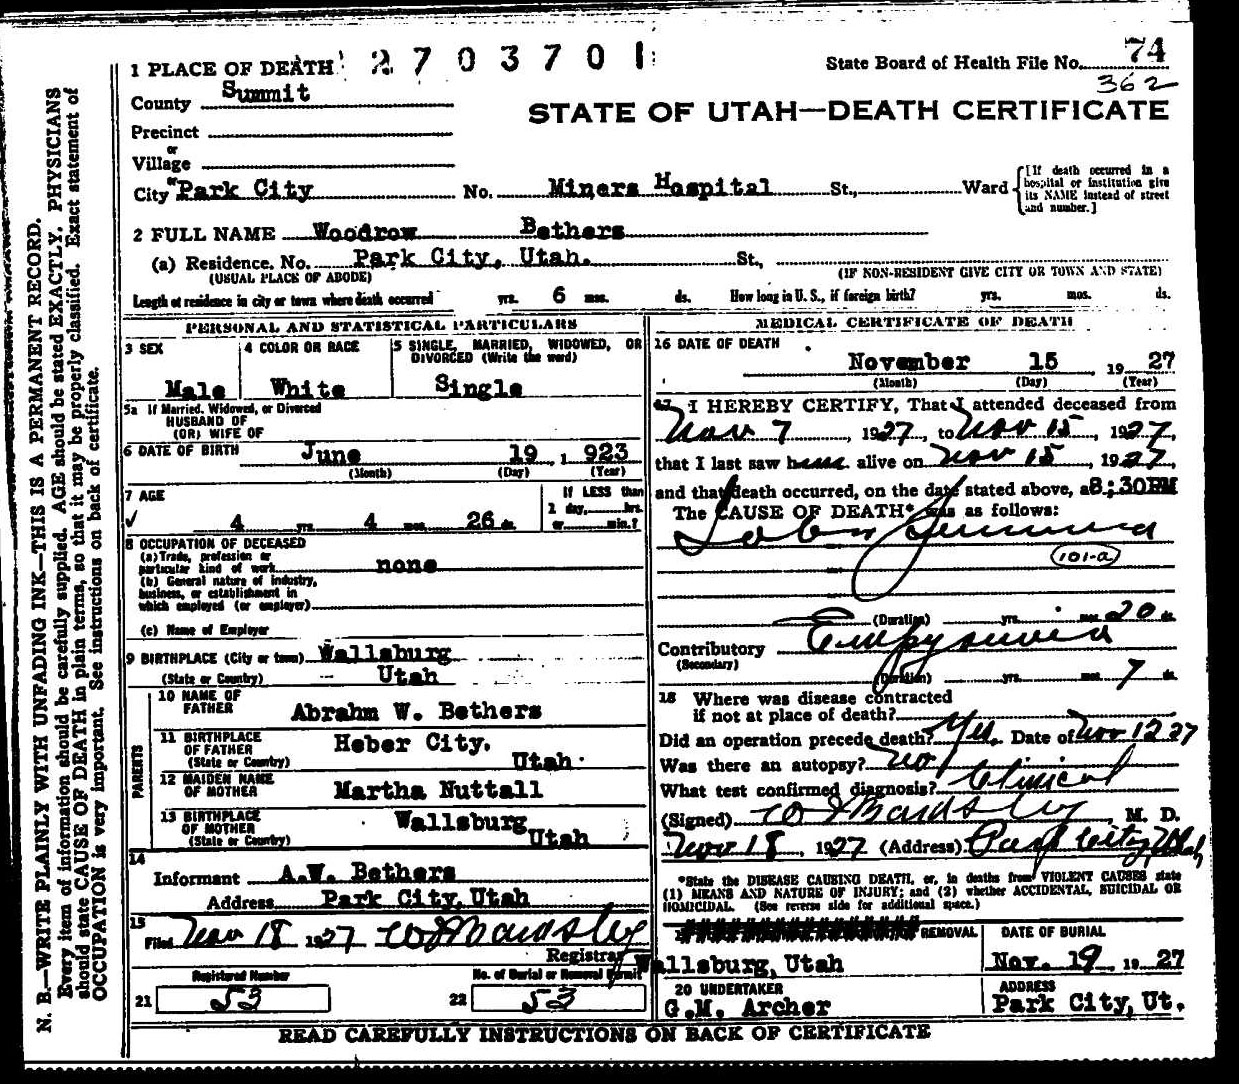 1 PLACE OF DEATH 2703701
State Board of Health File No. 74
362
County Summit
STATE OF UTAH—DEATH CERTIFICATE
Precinct
or
Village
or
City Park City No. Miners Hospital St., Ward
[If death occurred in a hospital or institution give its NAME instead of street and number.]
2 FULL NAME Woodrow Bethers
(a) Residence. No. Park City, Utah. St.,
(USUAL PLACE OF ABODE) (IF NON-RESIDENT GIVE CITY OR TOWN AND STATE)
Length of residence in city or town where death occurred yrs. 6 mos. ds. How long in U. S., if foreign birth? yrs. mos. ds.
PERSONAL AND STATISTICAL PARTICULARS
3 SEX
Male
4 COLOR OR RACE
White
5 SINGLE, MARRIED, WIDOWED, OR
DIVORCED (Write the word)
Single
5a If Married, Widowed, or Divorced
HUSBAND OF
(OR) WIFE OF
6 DATE OF BIRTH June 19, 1923
(Month) (Day) (Year)
7 AGE
✓ 4 yrs. 4 mos. 26 ds.
If LESS than
1 day, hrs.
or min.?
8 OCCUPATION OF DECEASED
(a) Trade, profession or
particular kind of work none
(b) General nature of industry,
business, or establishment in
which employed (or employer)
(c) Name of Employer
9 BIRTHPLACE (City or town) Wallsburg
(State or Country) Utah
PARENTS
10 NAME OF
FATHER Abrahm W. Bethers
11 BIRTHPLACE
OF FATHER Heber City.
(State or Country) Utah
12 MAIDEN NAME
OF MOTHER Martha Nuttall
13 BIRTHPLACE
OF MOTHER Wallsburg
(State or Country) Utah
14
Informant A.W. Bethers
Address Park City, Utah
15
Filed Nov 18 1927 W J Bardsley
Registrar
Registered Number
21 53
No. of Burial or Removal Permit
22 53
MEDICAL CERTIFICATE OF DEATH
16 DATE OF DEATH
November 15 1927
(Month) (Day) (Year)
17 I HEREBY CERTIFY, That I attended deceased from
Nov 7, 1927, to Nov 15, 1927,
that I last saw him alive on Nov 15, 1927,
and that death occurred, on the date stated above, at 8:30PM
The CAUSE OF DEATH* was as follows:
Lobar Pneumonia
101-a
(Duration) yrs. mos. 20 ds.
Contributory Empyemia
(Secondary)
(Duration) yrs. mos. 7 ds.
18 Where was disease contracted
if not at place of death?
Did an operation precede death? Yes. Date of Nov 12 27
Was there an autopsy? no
What test confirmed diagnosis? Clinical
(Signed) W J Bardsley, M. D.
Nov 18, 1927 (Address) Park City, Utah
*State the DISEASE CAUSING DEATH, or, in deaths from VIOLENT CAUSES state
(1) MEANS AND NATURE OF INJURY; and (2) whether ACCIDENTAL, SUICIDAL OR
HOMICIDAL. (See reverse side for additional space.)
REMOVAL
Wallsburg, Utah
DATE OF BURIAL
Nov. 19, 1927
20 UNDERTAKER
G.M. Archer
ADDRESS
Park City, Ut.
READ CAREFULLY INSTRUCTIONS ON BACK OF CERTIFICATE
N. B.—WRITE PLAINLY WITH UNFADING INK—THIS IS A PERMANENT RECORD.
Every item of information should be carefully supplied. AGE should be stated EXACTLY. PHYSICIANS
should state CAUSE OF DEATH in plain terms, so that it may be properly classified. Exact statement of
OCCUPATION is very important. See instructions on back of certificate.